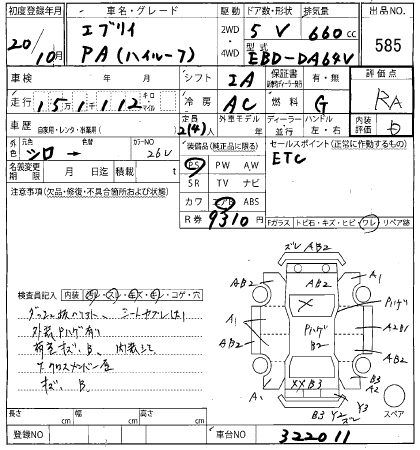 初度登録年月 車名・グレード 駆動 ドア数・形状 排気量 出品NO.
20/10月 エブリイ 2WD 5 V 660cc 585
PA (ハイルーフ) 4WD 型式 EBD-DA64V
車検 年 月 シフト IA 保証書 有・無 評価点
走行 15万1112 キロ マイル 冷房 AC 燃料 G RA
車歴 自家用・レンタ・事業用( ) 定員 2(4)人 外車モデル 年 ディーラー 並行 ハンドル 左・右 内装評価
外色 元色 シロ 色替 カラーNO 26U 装備品(純正品に限る) セールスポイント(正常に動作するもの)
名義変更期限 月 日迄 積載 t PS PW AW ETC
注意事項(欠品・修復・不具合箇所および状態) SR TV ナビ
カワ エアB ABS
R券 9310円
Fガラス トビ石・キズ・ヒビ・ワレ リペア跡
ズレ AB2
AB2 AB2 A1
検査員記入 内装 汚レ・スレ・キズ・コゲ・穴
A1 Pハゲ
シートヤブレ
外装Pハゲ有り Pハゲ B2 A2B1
AB2 AB2
荷室キズ、B、
キズ、B XX B3 B3 A2
A1 B3 Y2 ズレ Y3 スペア
長さ cm 幅 cm 高さ cm
登録NO 車台NO 322011